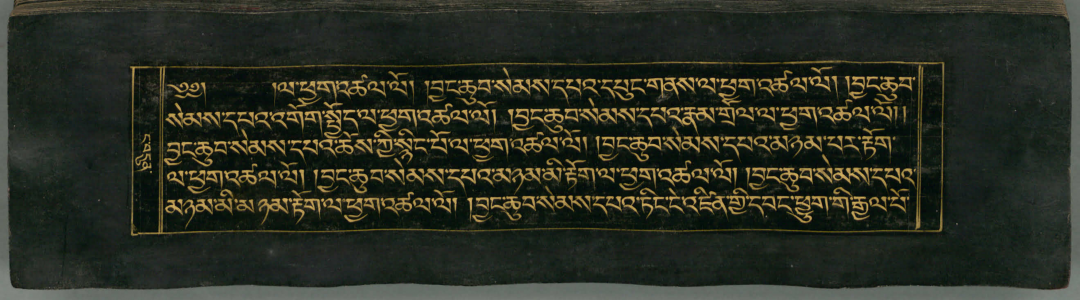 ༄༅། །ལ་ཕྱག་འཚལ་ལོ། །བྱང་ཆུབ་སེམས་དཔའ་དཔུང་གནས་ལ་ཕྱག་འཚལ་ལོ། །བྱང་ཆུབ་
སེམས་དཔའ་འགོག་སྤྱོད་ལ་ཕྱག་འཚལ་ལོ། །བྱང་ཆུབ་སེམས་དཔའ་རྣམ་གྲོལ་ལ་ཕྱག་འཚལ་ལོ། །
བྱང་ཆུབ་སེམས་དཔའ་ཆོས་ཀྱི་སྙིང་པོ་ལ་ཕྱག་འཚལ་ལོ། །བྱང་ཆུབ་སེམས་དཔའ་མཉམ་པར་རྟོག་
ལ་ཕྱག་འཚལ་ལོ། །བྱང་ཆུབ་སེམས་དཔའ་མཉམ་མི་རྟོག་ལ་ཕྱག་འཚལ་ལོ། །བྱང་ཆུབ་སེམས་དཔའ་
མཉམ་མི་མཉམ་རྟོག་ལ་ཕྱག་འཚལ་ལོ། །བྱང་ཆུབ་སེམས་དཔའ་ཏིང་ངེ་འཛིན་གྱི་དབང་ཕྱུག་གི་རྒྱལ་པོ་